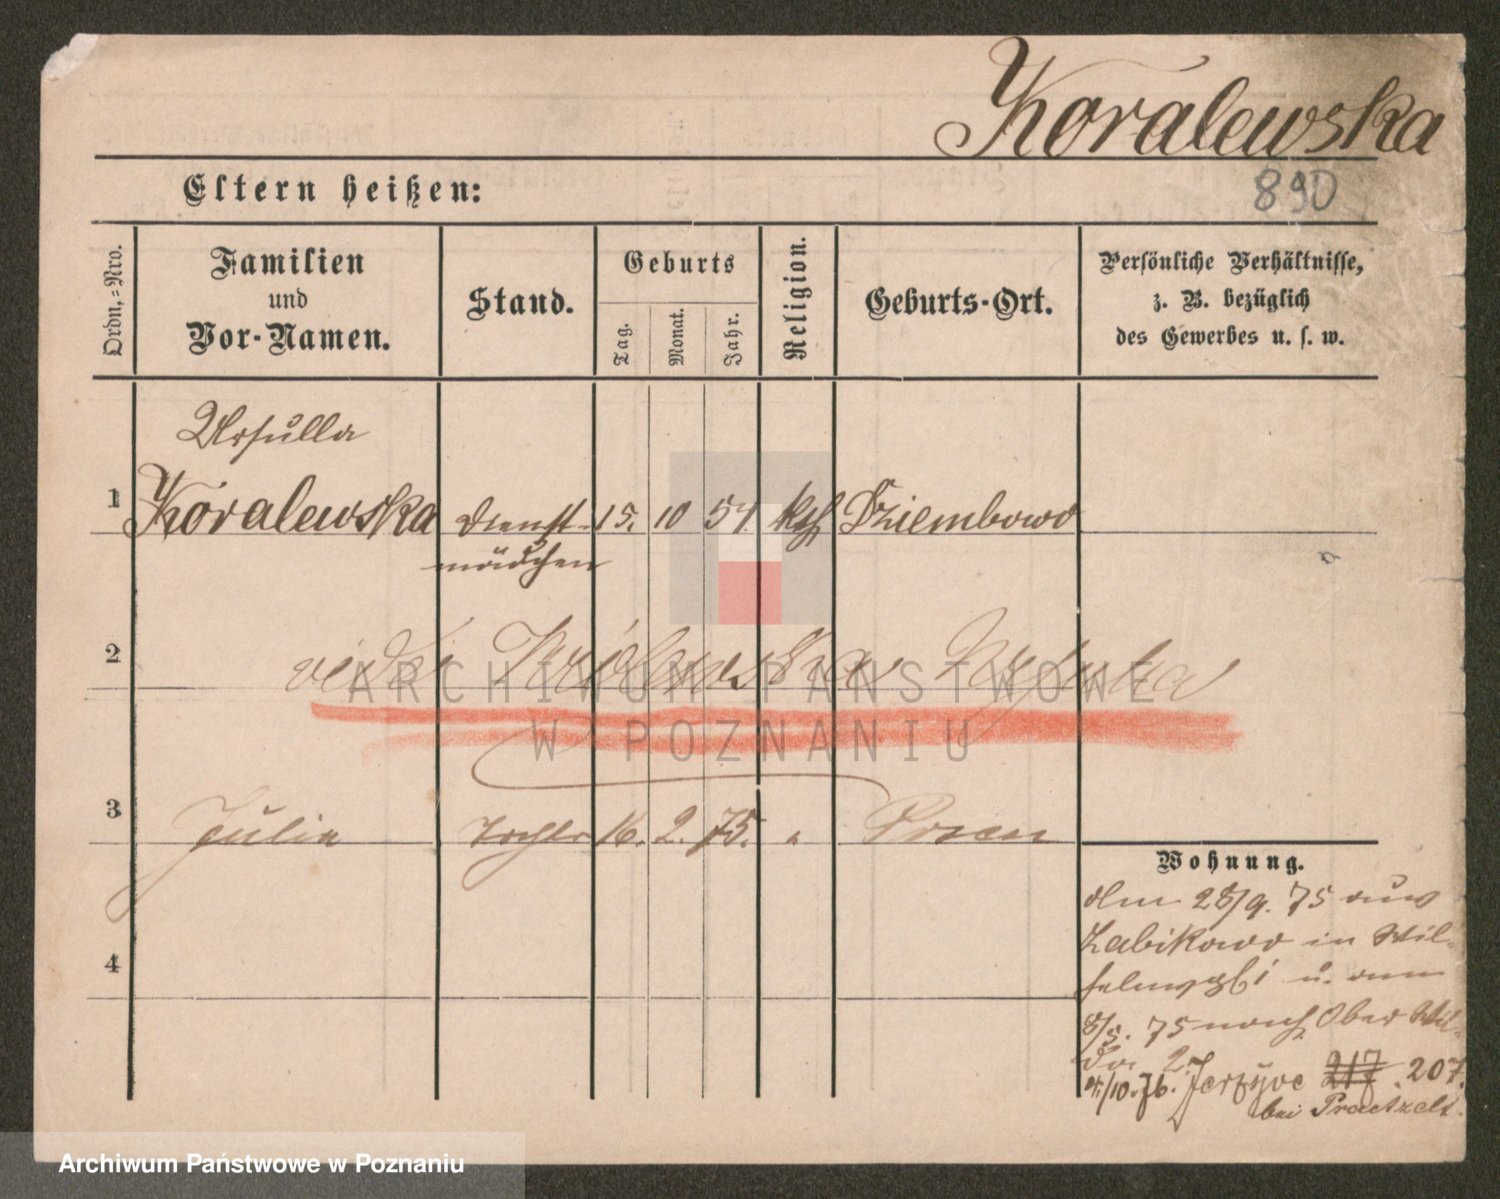 Koralewska
Eltern heißen:
890
Ordn.=Nro.
Familien
und
Vor-Namen.
Stand.
Geburts
Tag.
Monat.
Jahr.
Religion.
Geburts-Ort.
Persönliche Verhältnisse,
z. B. bezüglich
des Gewerbes u. s. w.
Ursulla
1 Koralewska Dienst- 15. 10 54. kth Dziembowo
mädchen
2
vide Królewska
3 Julia Tochter 16. 2. 75. "
Wohnung.
28/9. 75 aus
Zabikowo in Wil-
u. am
8/5. 75 nach Ober Wil-
da 2.
4/10. 76. Jerzyce 217. 207.
bei Praetzelt.
4
ARCHIWUM PAŃSTWOWE
W POZNANIU
Archiwum Państwowe w Poznaniu